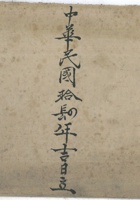 中華民國拾肆年吉日立